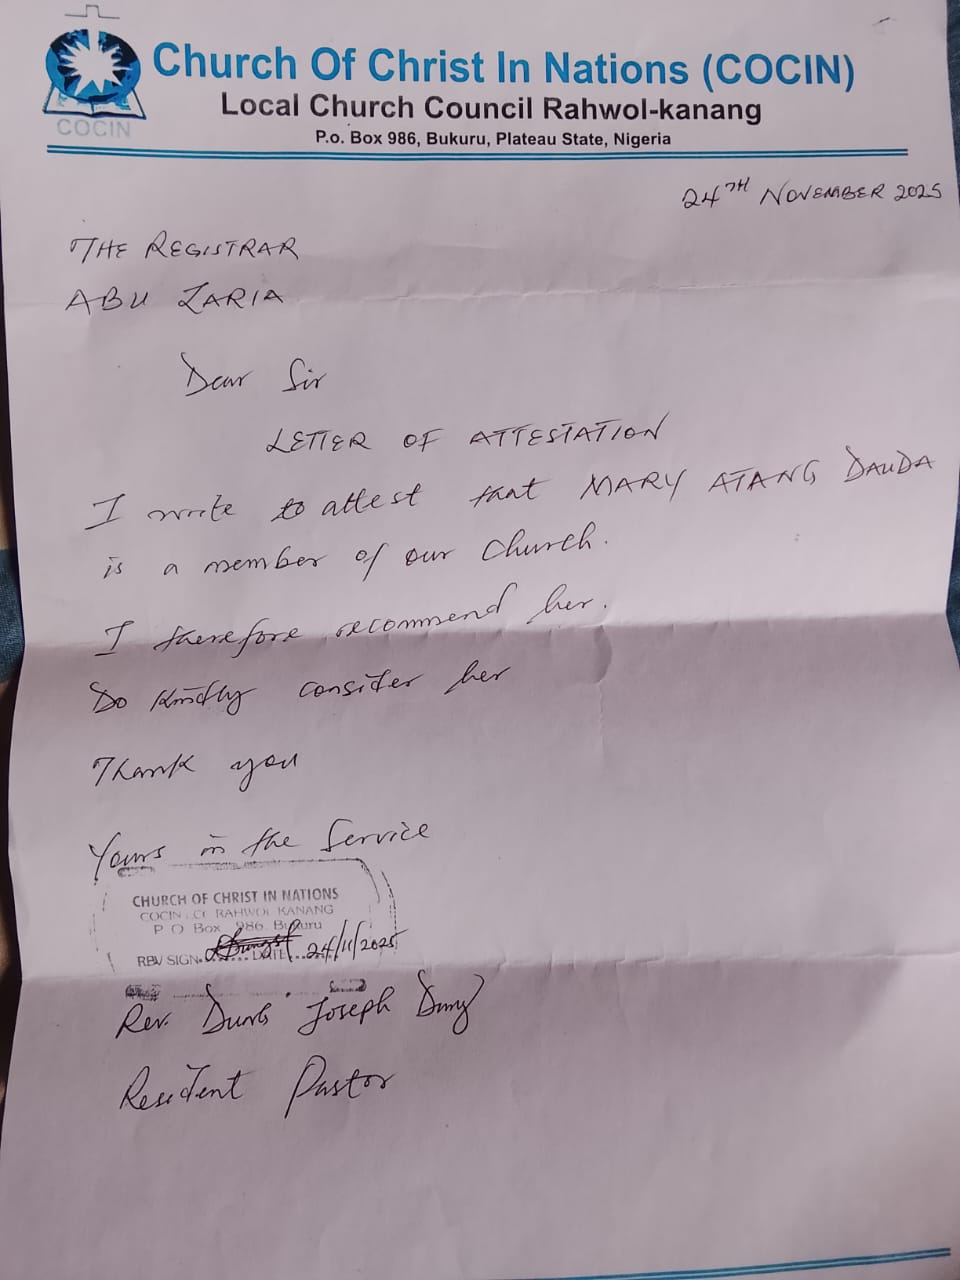 COCIN
Church Of Christ In Nations (COCIN)
Local Church Council Rahwol-kanang
P.o. Box 986, Bukuru, Plateau State, Nigeria
24TH NOVEMBER 2025
THE REGISTRAR
ABU ZARIA
Dear Sir
LETTER OF ATTESTATION
I write to attest that MARY ATANG DAUDA
is a member of our Church.
I therefore recommend her.
Do kindly consider her
Thank you
Yours in the Service
CHURCH OF CHRIST IN NATIONS
COCIN RAHWOL KANANG
P O Box 986, Bukuru
REV SIGN. DATE 24/11/2025
Rev. Dung Joseph Dung
Resident Pastor